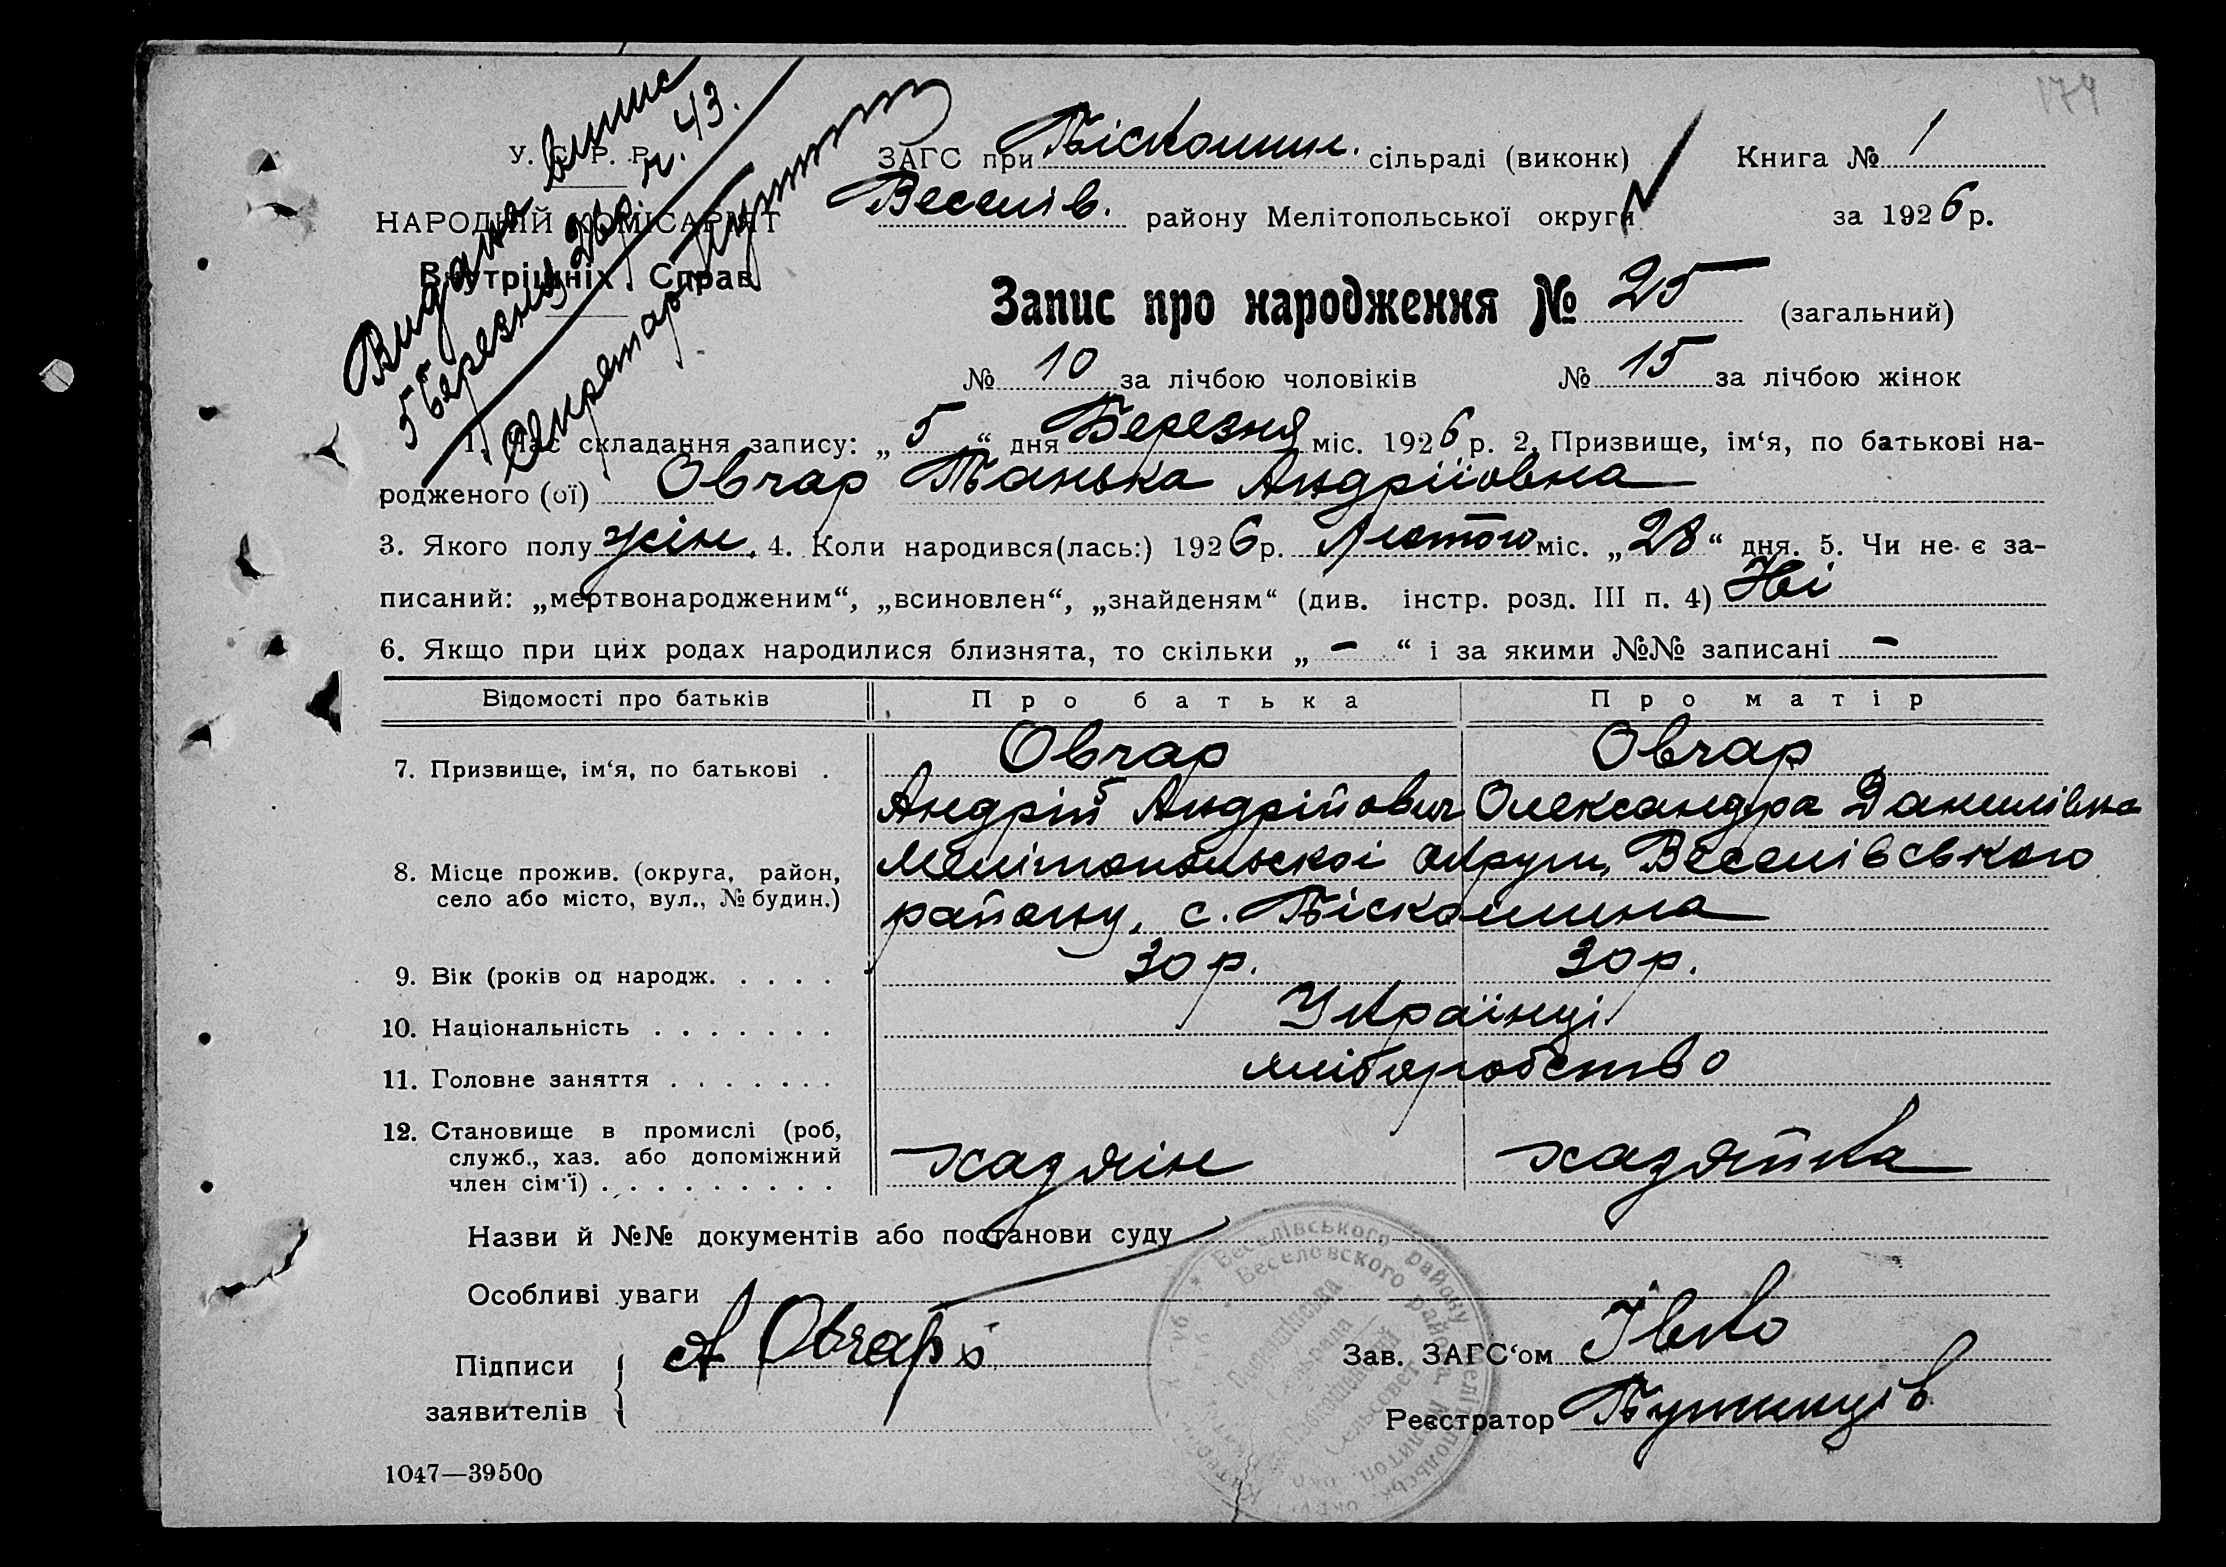 174
Видана випис
5 березня 26 р. ч. 43.
Секретар
У. С. Р. Р.
НАРОДНІЙ КОМІСАРІЯТ
Внутрішніх Справ
ЗАГС при Піскошин. сільраді (виконк)
Веселів. району Мелітопольської округи
Книга № 1
за 1926 р.
Запис про народження № 25 (загальний)
№ 10 за лічбою чоловіків № 15 за лічбою жінок
1. Час складання запису: „5“ дня Березня міс. 1926 р. 2. Призвище, ім‘я, по батькові на-
родженого (ої) Овчар Танька Андріївовна
3. Якого полу жін. 4. Коли народився(лась:) 1926 р. Лютого міс. „28“ дня. 5. Чи не є за-
писаний: „мертвонародженим“, „всиновлен“, „знайденям“ (див. інстр. розд. III п. 4) Ні
6. Якщо при цих родах народилися близнята, то скільки „ – “ і за якими №№ записані –
Відомості про батьків Про батька Про матір
7. Призвище, ім‘я, по батькові . Овчар Овчар
Андрій Андрійович Олександра Данилівна
8. Місце прожив. (округа, район,
село або місто, вул., № будин.)
Мелітопольскоі округи, Веселівського
району, с. Піскошина
9. Вік (років од народж. . . . . 30 р. 30 р.
10. Національність . . . . . . . Українці
11. Головне заняття . . . . . . . хліборобство
12. Становище в промислі (роб,
служб., хаз. або допоміжний
член сім‘ї) . . . . . . . . .
хазяін хазяйка
Назви й №№ документів або постанови суду
Особливі уваги
Підписи
заявителів
А Овчар
Зав. ЗАГС‘ом Івко
Реєстратор
* Веселівського району Мелітопольськ. округи
Веселовского района, Мелитоп. окр.
Сільрада
Сельсовет
1047—39500